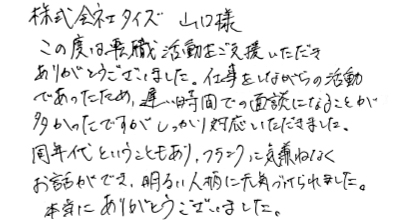 株式会社エイズ 山口様
この度は転職活動をご支援いただき
ありがとうございました。仕事をしながらの活動
であったため、遅い時間での面談になることが
多かったですがしっかり対応いただきました。
同年代ということもあり、フランクに気兼ねなく
お話ができ、明るい人柄に元気づけられました。
本当にありがとうございました。